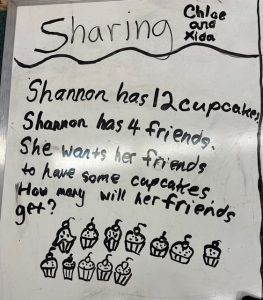 Sharing
Chloe
and
Xida
Shannon has 12 cupcakes
Shannon has 4 friends.
She wants her friends
to have some cupcakes
How many will her friends
get?